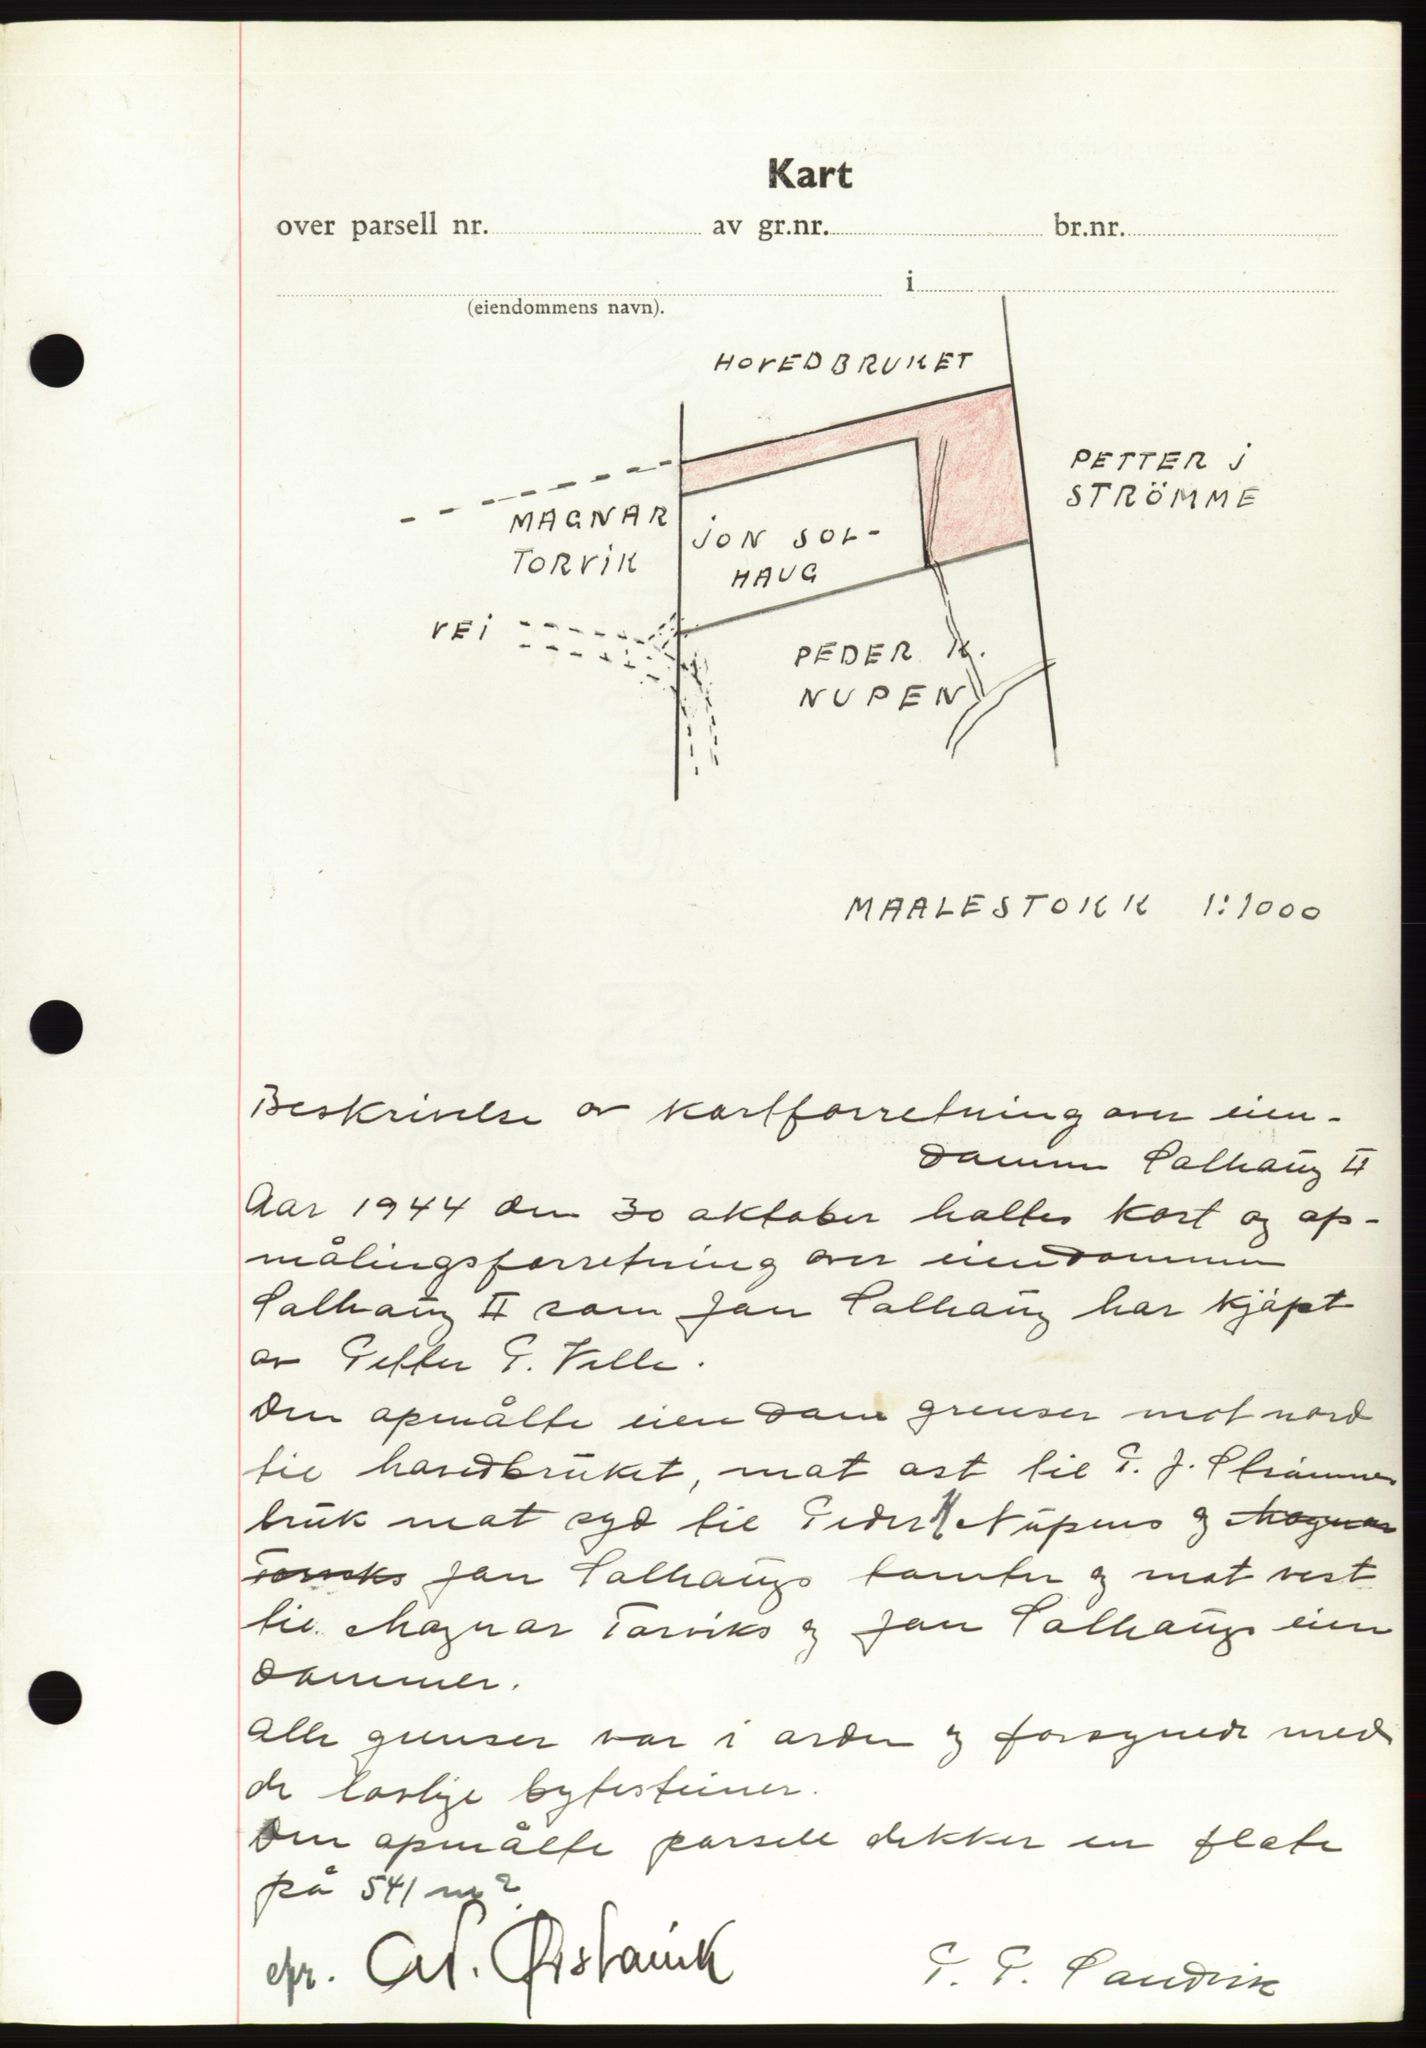 Kart
over parsell nr. av gr.nr. br.nr.
i
(eiendommens navn).
HOVEDBRUKET
PETTER J
STRÖMME
MAGNAR
TORVIK
JON SOL-
HAUG
VEI
PEDER K.
NUPEN
MAALESTOKK 1:1000
Beskrivelse av kartforretning over eien-
dommen Solhaug II
Aar 1944 den 30 oktober holtes kart og op-
målingsforretning over eiendommen
Solhaug II som Jon Solhaug har kjöpt
av Petter P.
Den opmålte eiendom grenser mot nord
til hovedbruket, mot ost til P. J. Strömmes
bruk mot syd til Peder K Nupens og Magnar
Torviks Jon Solhaugs tomter og mot vest
til Magnar Torviks og Jon Solhaugs eien
dommer.
Alle grenser var i orden og forsynede med
de lovlige bytesteiner.
Den opmålte parsell dekker en flate
på 541 m².
P. P. Sandvik